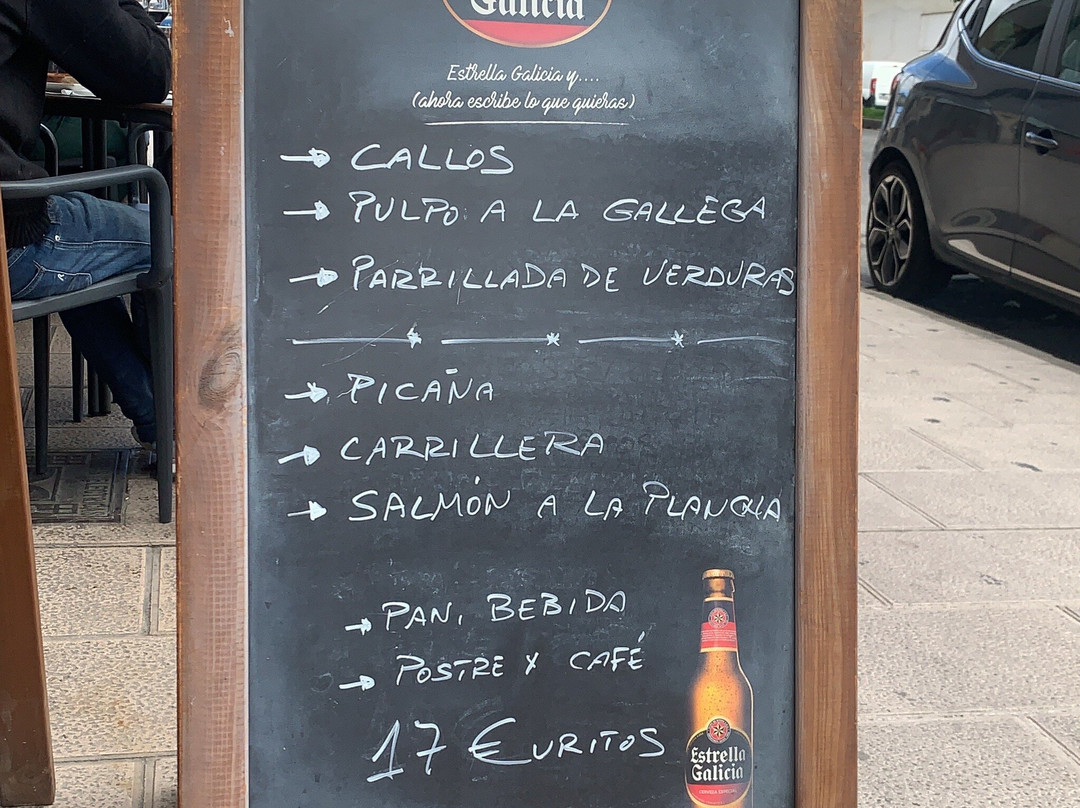 Galicia
Estrella Galicia y....
(ahora escribe lo que quieras)
→ CALLOS
→ PULPO A LA GALLEGA
→ PARRILLADA DE VERDURAS
→ PICAÑA
→ CARRILLERA
→ SALMÓN A LA PLANCHA
→ PAN, BEBIDA
→ POSTRE Y CAFÉ
17 €URITOS
Estrella
Galicia
CERVEZA ESPECIAL